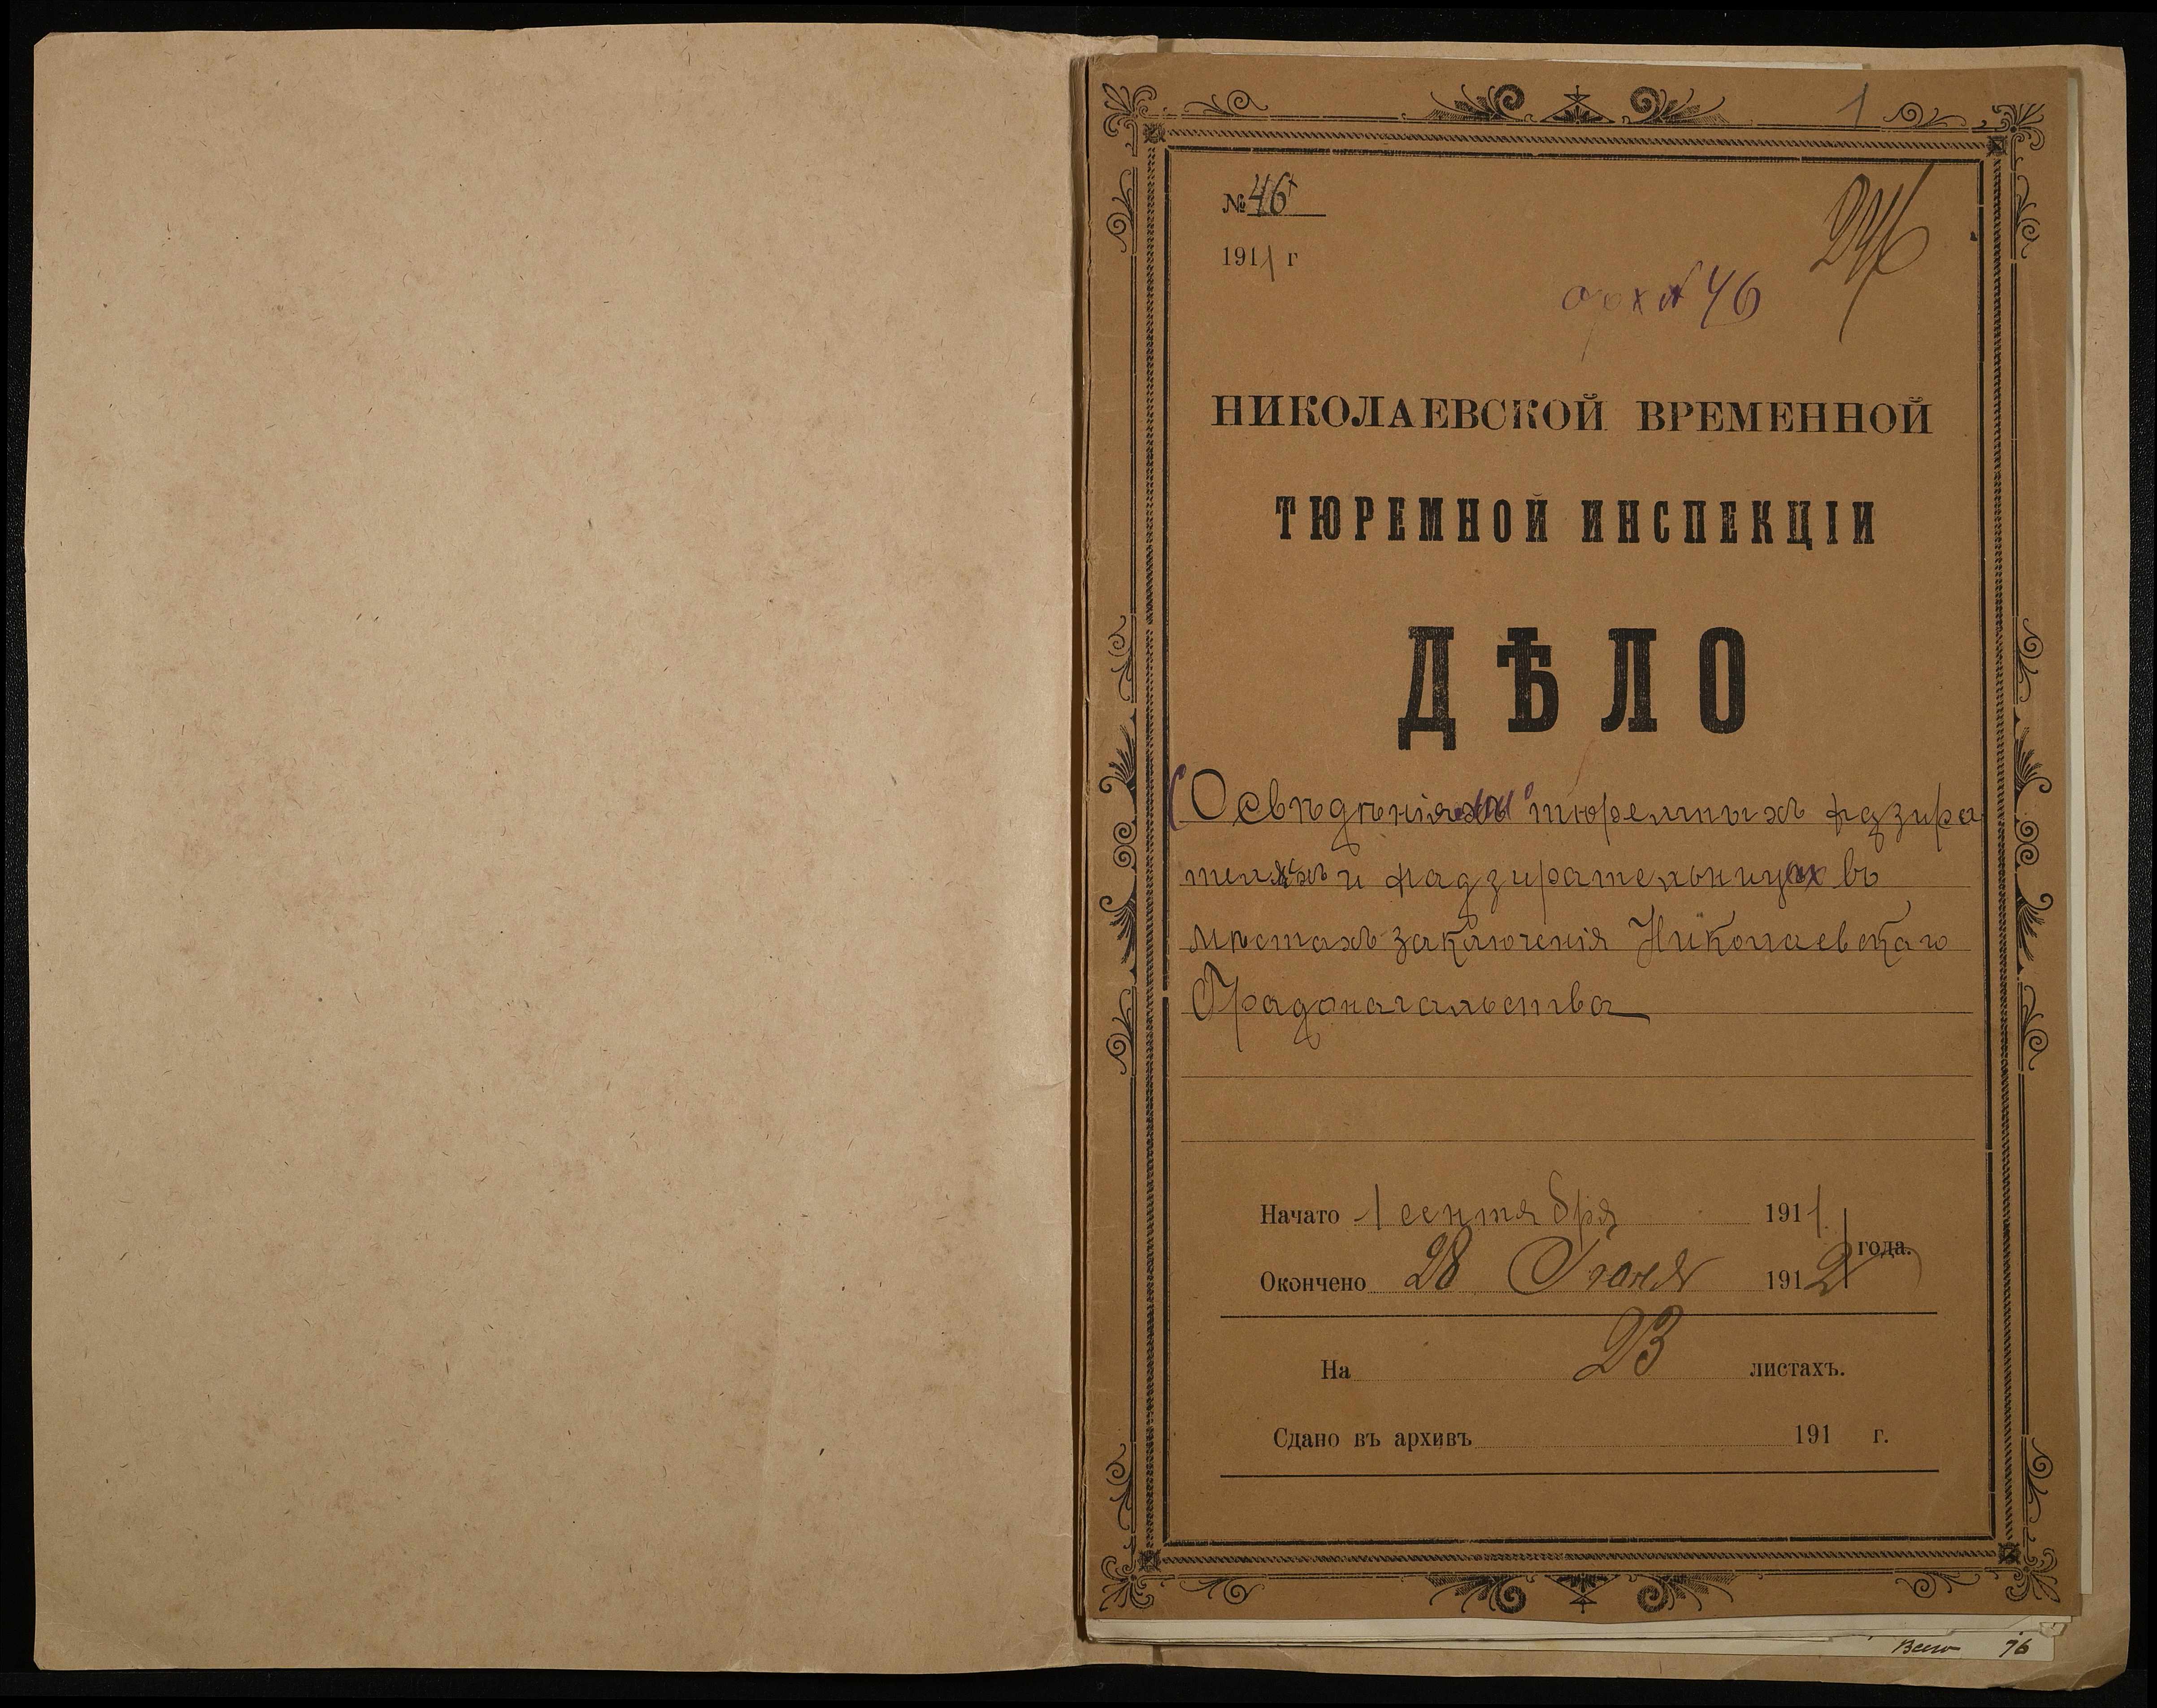 1
№ 46
1911 г
арх № 46
НИКОЛАЕВСКОЙ ВРЕМЕННОЙ
ТЮРЕМНОЙ ИНСПЕКЦІИ
ДѢЛО
О свѣдѣніяхъ о тюремныхъ надзира
теляхъ и надзирательницах въ
мѣстахъ заключенія Николаевскаго
Градоначальства
Начато 1 сентября 1911
года.
Окончено 28 Іюня 1912
На 23 листахъ.
Сдано въ архивъ 191 г.
Всего 76